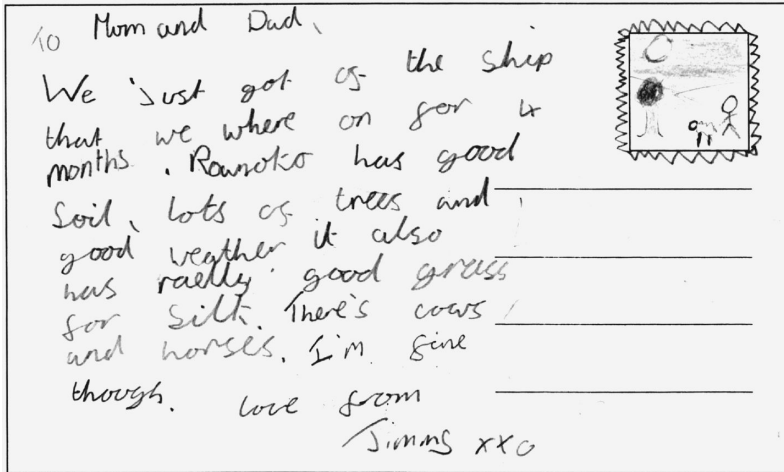 To Mom and Dad,
We just got of the ship
that we where on for 4
months. Rownoko has good
Soil, lots of trees and
good weather it also
has raelly good grass
for Silk. There's cows
and horses. I'm fine
though. love from
Jimmy xxo